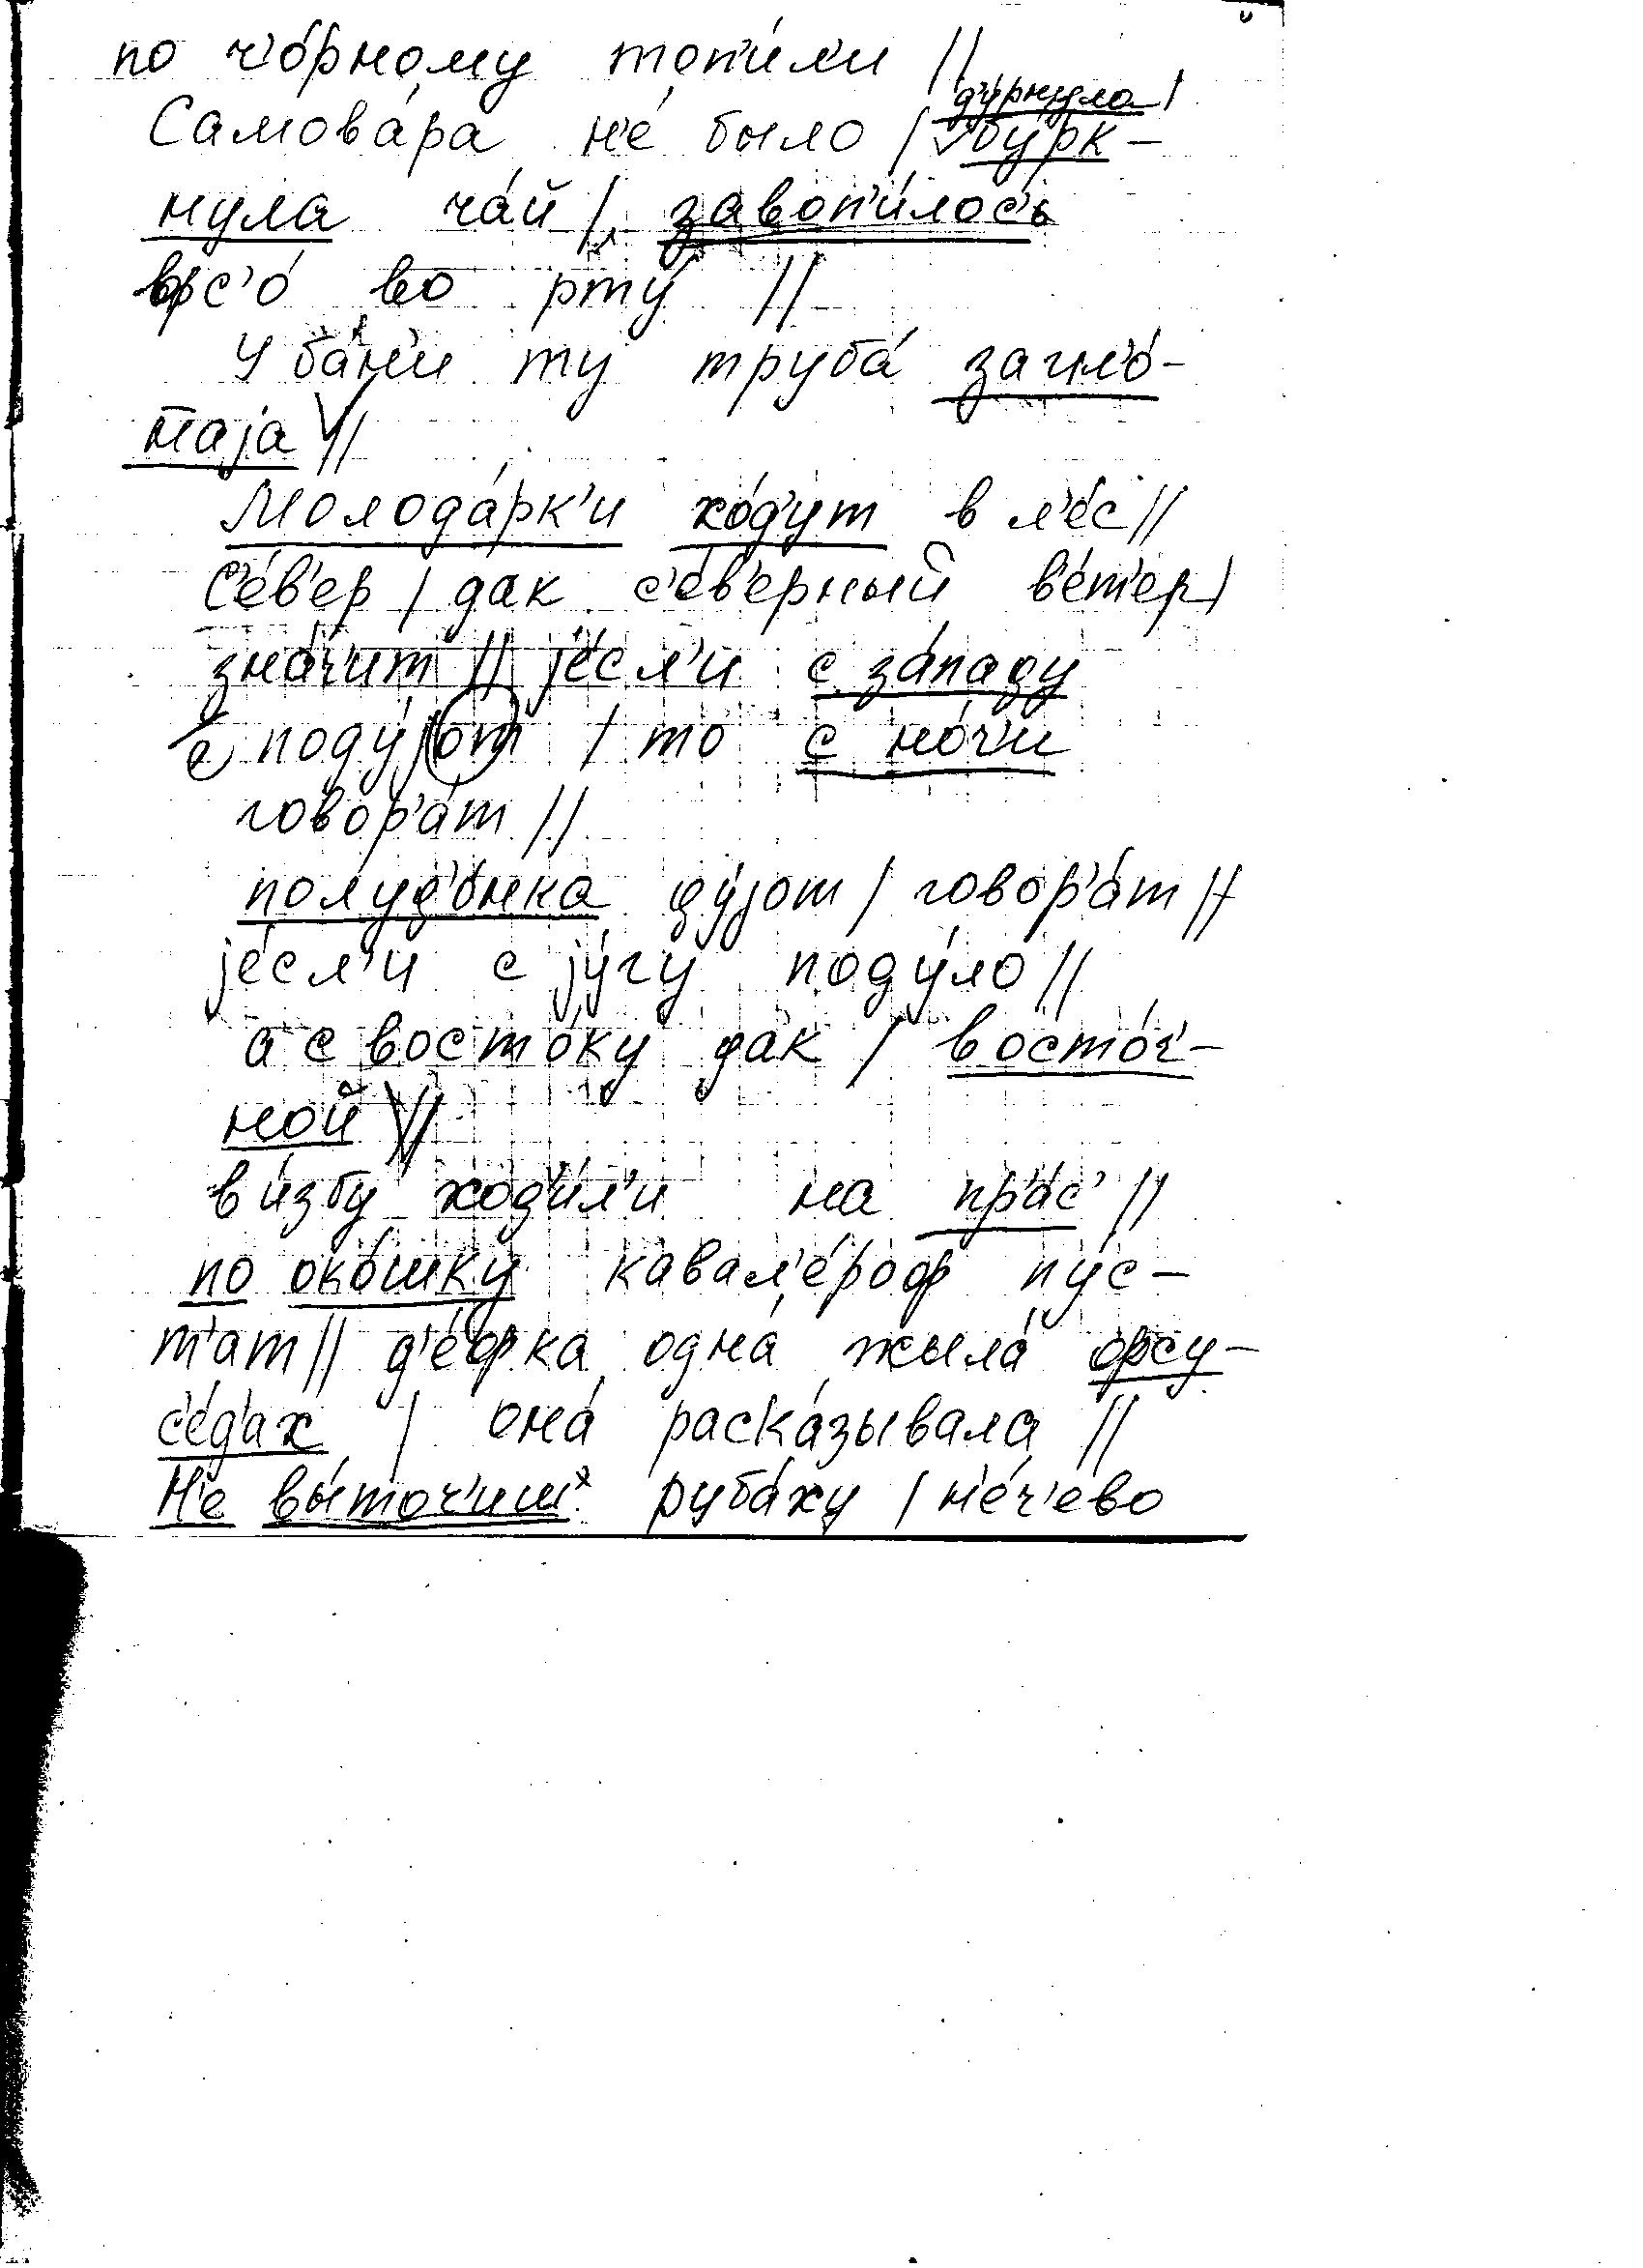 по ч'о́рному топ'и́л'и //
дурнула /
Самова́ра н'е́ было / бу́рк-
нула ча́й /, завоп'и́лос'ь
фс'о́ во рту́ //
У ба́н'и ту труба́ загл'о́-
таjа //
Молода́рк'и хо́д'ут в л'е́с //
С'е́в'ер / дак с'е́в'ерный в'е́т'ер /
зна́ч'ит // jе́сл'и с за́паду
поду́jот / то с но́ч'и
говор'а́т //
полуд'о́нка ду́jот / говор'а́т //
jе́сл'и с jу́гу поду́ло //
а с восто́ку дак / восто́ч'-
ной //
в и́збу ход'и́л'и на пр'а́с' //
по око́шку кавал'е́роф пу́с-
т'ат // д'е́фка одна́ жыла́ фсу-
с'е́д'ах / она́ раска́зывала //
Н'е вы́точ'иш рубаху / н'е́ч'ево